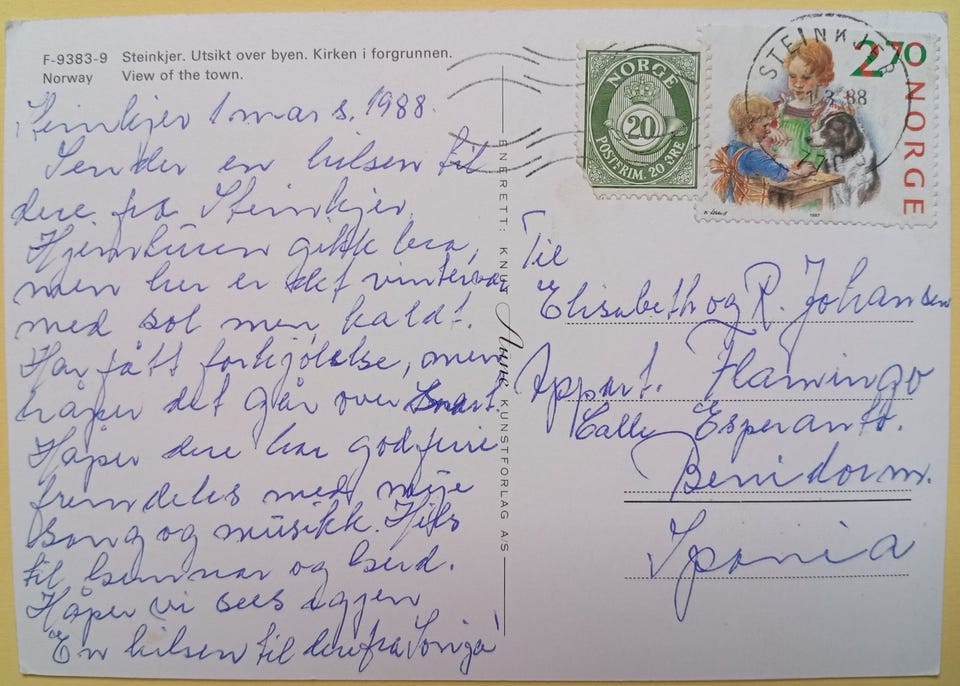 F-9383-9 Steinkjer. Utsikt over byen. Kirken i forgrunnen.
Norway View of the town.
Steinkjer 1 mars, 1988.
Sender en hilsen til
dere fra Steinkjer.
Hjemturen gikk bra,
men her er det vinterver
med sol men kaldt.
Har fått forkjølelse, men
håper det går over snart.
Håper dere har god ferie
fremdeles med mye
song og musikk. Hils
til Gunnar og Gerd.
Håper vi sees igjen
En hilsen til dere fra Sonja
ENERETT: KNUT Aune KUNSTFORLAG A/S
NORGE
20
POSTFRIM. 20 ØRE
270
NORGE
1987
STEINKJER
1.3.88
7700
Til
Elisabeth og R. Johansen
Appart. Flamingo
Calle Esperanto.
Benidorm.
Spania